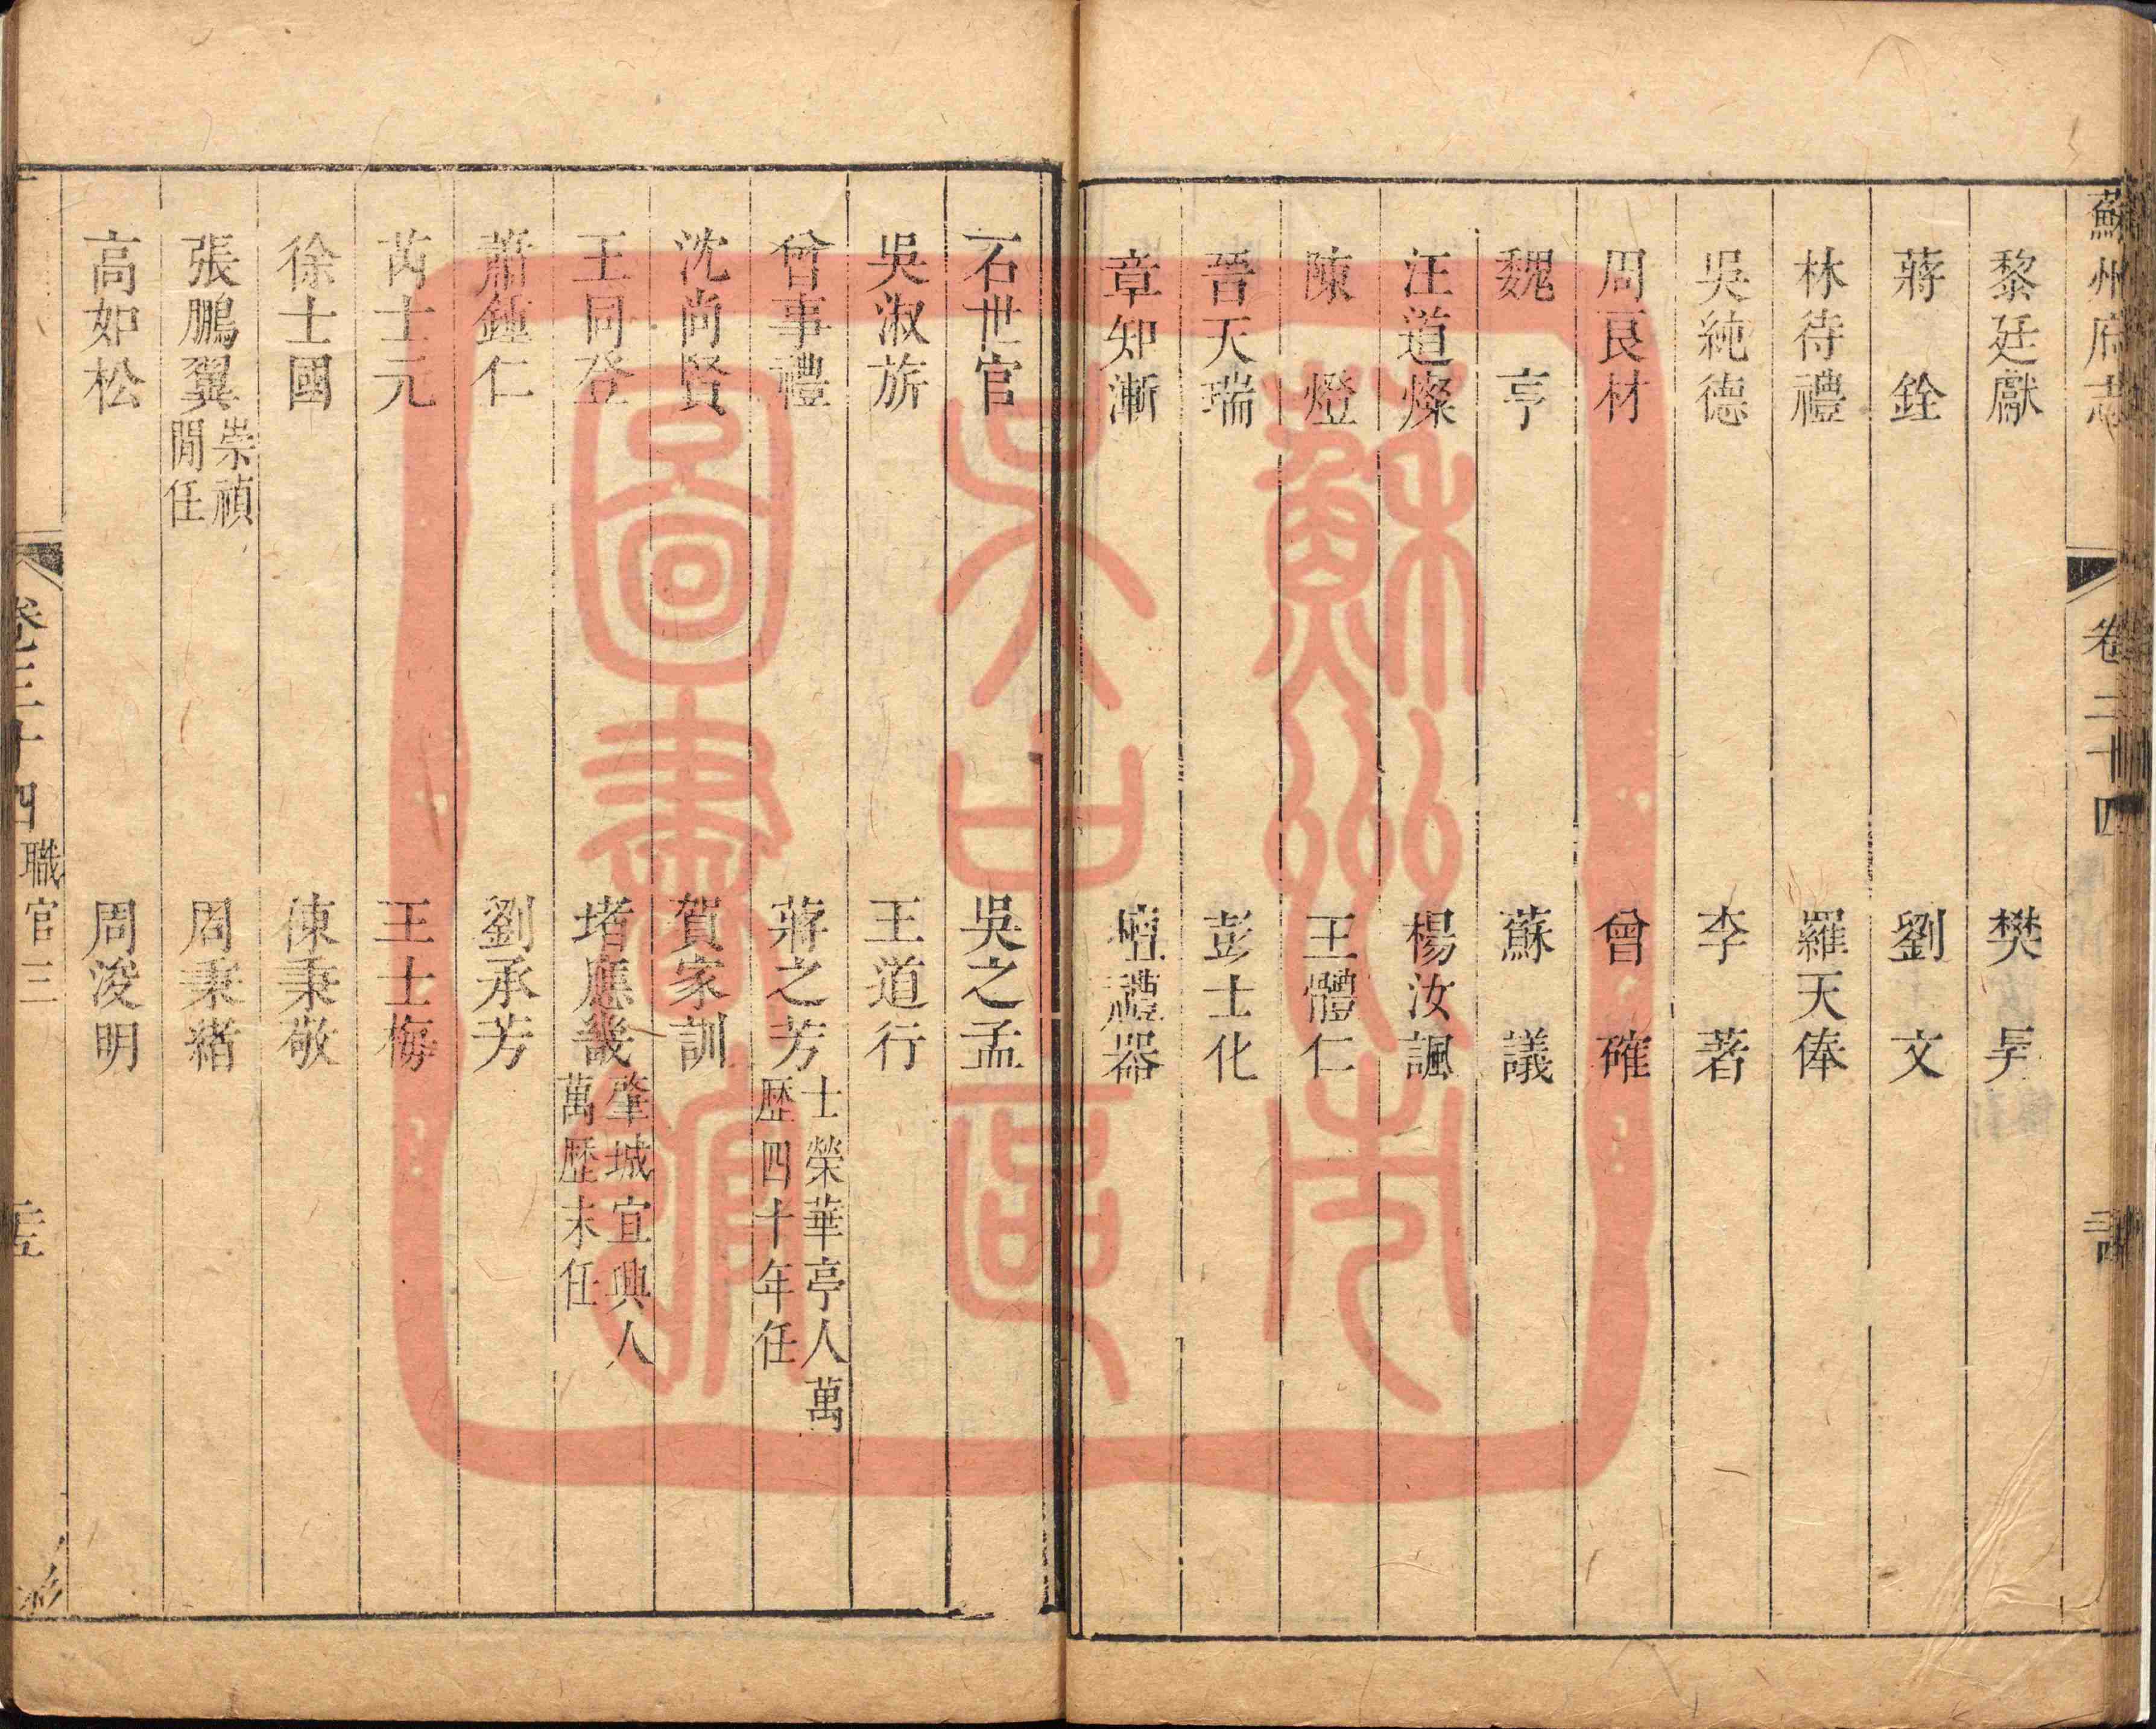 蘇州府志
卷二十四
黎廷獻 樊㫒
蔣銓 劉文
林待禮 羅天俸
吳純德 李著
周良材 曾確
魏亨 蘇議
汪道燦 楊汝諷
陳燈 王體仁
晉天瑞 彭士化
章知漸 禮器
石世官 吳之孟
吳淑旂 王道行
曾事禮 蔣之芳 士榮華亭人萬
歷四十年任
沈尚賢 賀家訓
王同登 堵應畿 肇城宜興人
萬歷末任
蕭鍾仁 劉承芳
芮士元 王士梅
徐士國 陳秉敬
張鵬翼 崇禎 周秉緒
閒任
高如松 周浚明
卷二十四 職官三
蘇州市
吳中區
圖書館